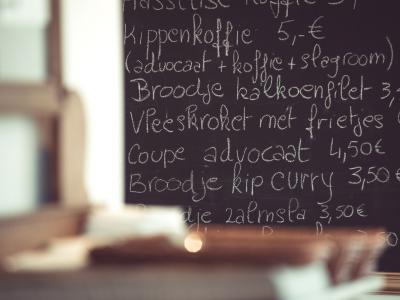 Hasseltse koffie 5,-
Kippenkoffie 5,-€
(advocaat + koffie + slagroom)
Broodje kalkoenfilet 3,
Vleeskroket met frietjes
Coupe advocaat 4,50€
Broodje kip curry 3,50€
dje zalmsla 3,50€